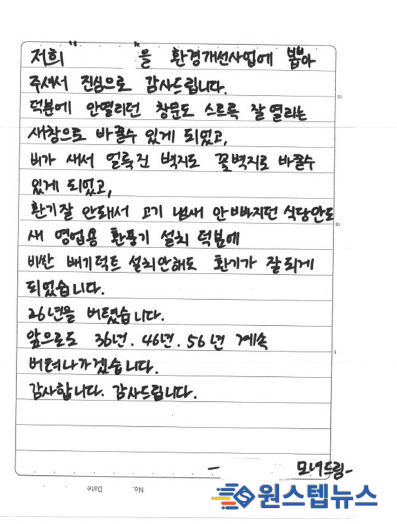 저희 " "을 환경개선사업에 뽑아
주셔서 진심으로 감사드립니다.
덕분에 안열리던 창문도 스르륵 잘열리는
새창으로 바꿀수 있게 되었고,
비가 새서 얼룩진 벽지도 꽃벽지로 바꿀수
있게 되었고,
환기잘 안돼서 고기 냄새 안빠지던 식당안도
새 영업용 환풍기 설치 덕분에
비싼 배기덕트 설치안해도 환기가 잘되게
되었습니다.
26년을 버텼습니다.
앞으로도 36년. 46년. 56년 계속
버텨나가겠습니다.
감사합니다. 감사드립니다.
- 모녀드림-
No. Date
원스텝뉴스